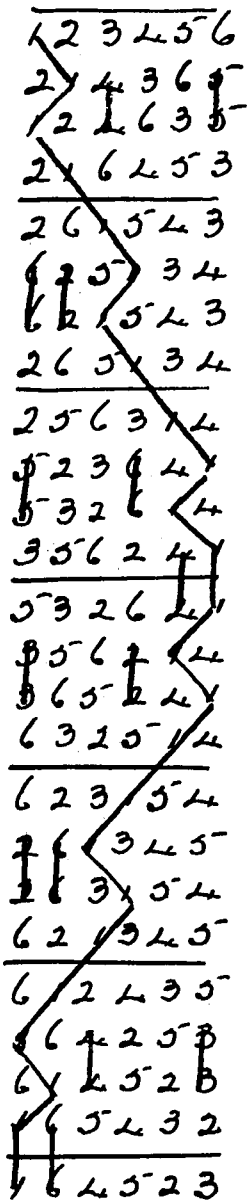 1 2 3 4 5 6
2 1 4 3 6 5
1 2 4 6 3 5
2 1 6 4 5 3
2 6 1 5 4 3
6 2 5 1 3 4
6 2 1 5 4 3
2 6 5 1 3 4
2 5 6 3 1 4
5 2 3 6 4 1
5 3 2 6 1 4
3 5 6 2 4 1
5 3 2 6 4 1
3 5 6 2 1 4
3 6 5 2 4 1
6 3 2 5 1 4
6 2 3 1 5 4
2 6 1 3 4 5
2 6 3 1 5 4
6 2 1 3 4 5
6 1 2 4 3 5
1 6 4 2 5 3
6 1 4 5 2 3
1 6 5 4 3 2
1 6 4 5 2 3